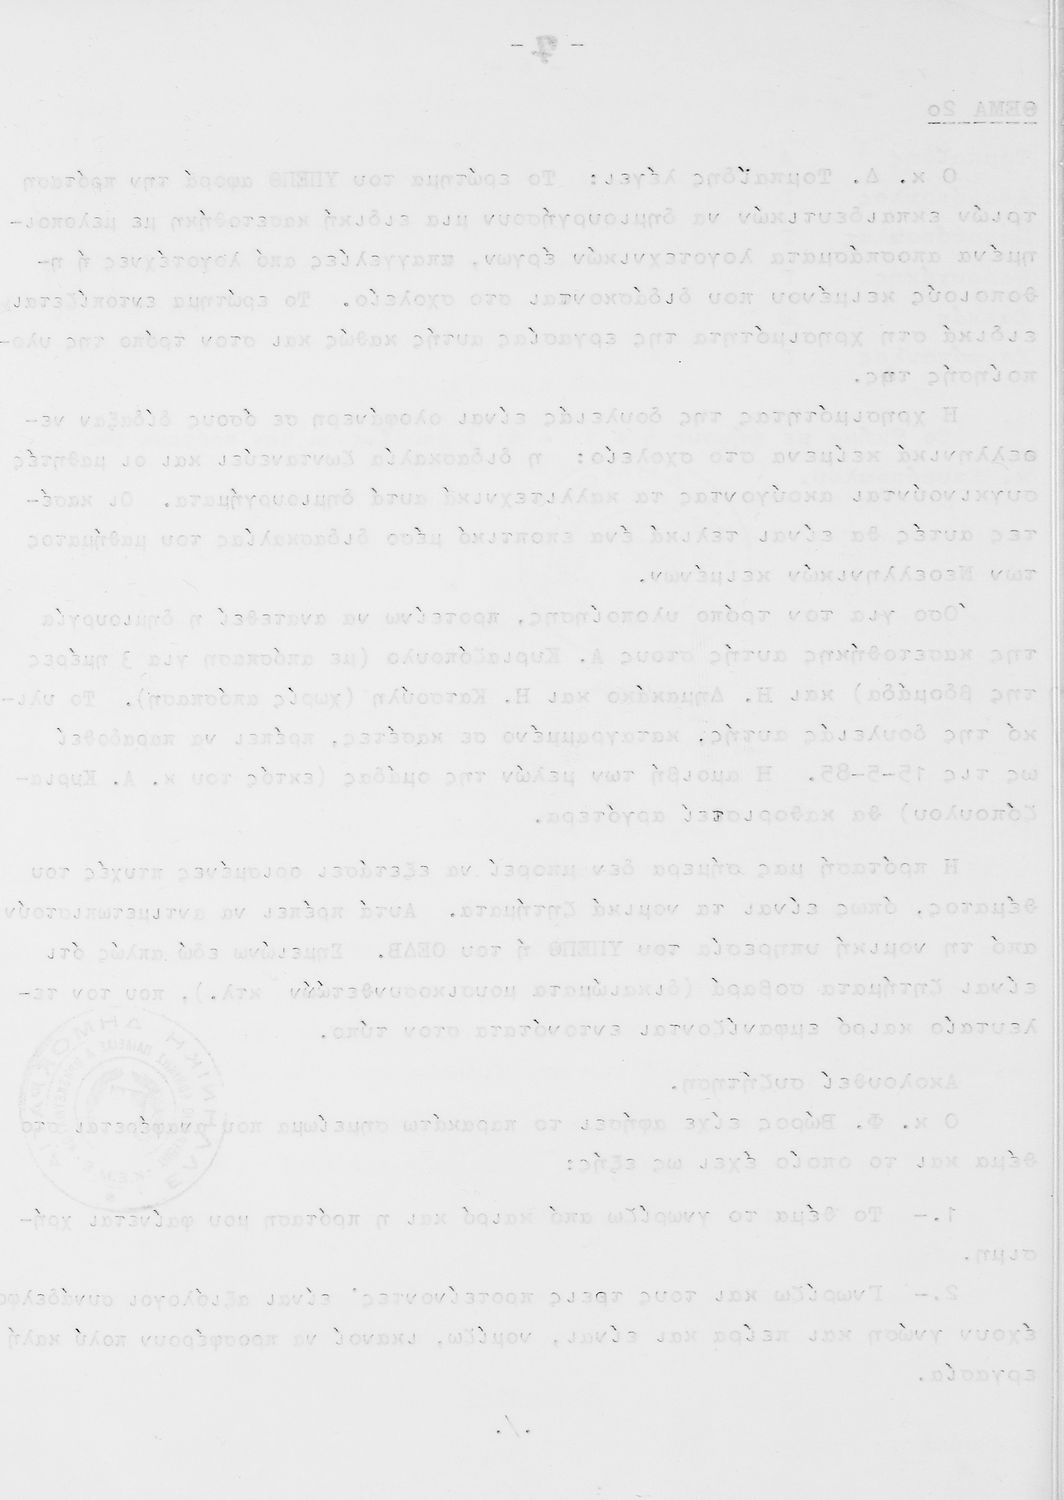 - 7 -
ΘΕΜΑ 2ο
Ο κ. Δ. Τομπαΐδης λέγει: Το ερώτημα του ΥΠΕΠΘ αφορά την πρόταση
τριών εκπαιδευτικών να δημιουργήσουν μια ειδική κασετοθήκη με μελοποι-
ημένα αποσπάσματα λογοτεχνικών έργων, απαγγελίες από λογοτέχνες ή η-
θοποιούς κειμένου που διδάσκονται στο σχολείο. Το ερώτημα εντοπίζεται,
ειδικά στη χρησιμότητα της εργασίας αυτής καθώς και στον τρόπο της υλο-
ποίησής της.
Η χρησιμότητας της δουλειάς είναι ολοφάνερη σε όσους δίδαξαν νε-
οελληνικά κείμενα στο σχολείο: η διδασκαλία ζωντανεύει και οι μαθητές
συγκινούνται ακούγοντας τα καλλιτεχνικά αυτά δημιουργήματα. Οι κασέ-
τες αυτές θα είναι τελικά ένα εποπτικό μέσο διδασκαλίας του μαθήματος
των Νεοελληνικών κειμένων.
Όσο για τον τρόπο υλοποίησης, προτείνω να ανατεθεί η δημιουργία
της κασετοθήκης αυτής στους Α. Κυριαζόπουλο (με απόσπαση για 3 ημέρες
της βδομάδα) και Η. Δημακάκο και Η. Κατσούλη (χωρίς απόσπαση). Το υλι-
κό της δουλειάς αυτής, καταγραμμένο σε κασέτες, πρέπει να παραδοθεί
ως τις 15-5-85. Η αμοιβή των μελών της ομάδας (εκτός του κ. Α. Κυρια-
ζόπουλου) θα καθοριστεί αργότερα.
Η πρότασή μας σήμερα δεν μπορεί να εξετάσει ορισμένες πτυχές του
θέματος, όπως είναι τα νομικά ζητήματα. Αυτά πρέπει να αντιμετωπιστούν
από τη νομική υπηρεσία του ΥΠΕΠΘ ή του ΟΕΔΒ. Σημειώνω εδώ απλώς ότι
είναι ζητήματα σοβαρά (δικαιώματα μουσικοσυνθετών κτλ.), που τον τε-
λευταίο καιρό εμφανίζονται εντονότατα στον τύπο.
Ακολουθεί συζήτηση.
Ο κ. Φ. Βώρος είχε αφήσει το παρακάτω σημείωμα που αναφέρεται στο
θέμα και το οποίο έχει ως εξής:
1.- Το θέμα το γνωρίζω από καιρό και η πρόταση μου φαίνεται χρή-
σιμη.
2.- Γνωρίζω και τους τρεις προτείνοντες· είναι αξιόλογοι συνάδελφοι
έχουν γνώση και πείρα και είναι, νομίζω, ικανοί να προσφέρουν πολύ καλή
εργασία.
./.
ΕΛΛΗΝΙΚΗ ΔΗΜΟΚΡΑΤΙΑ